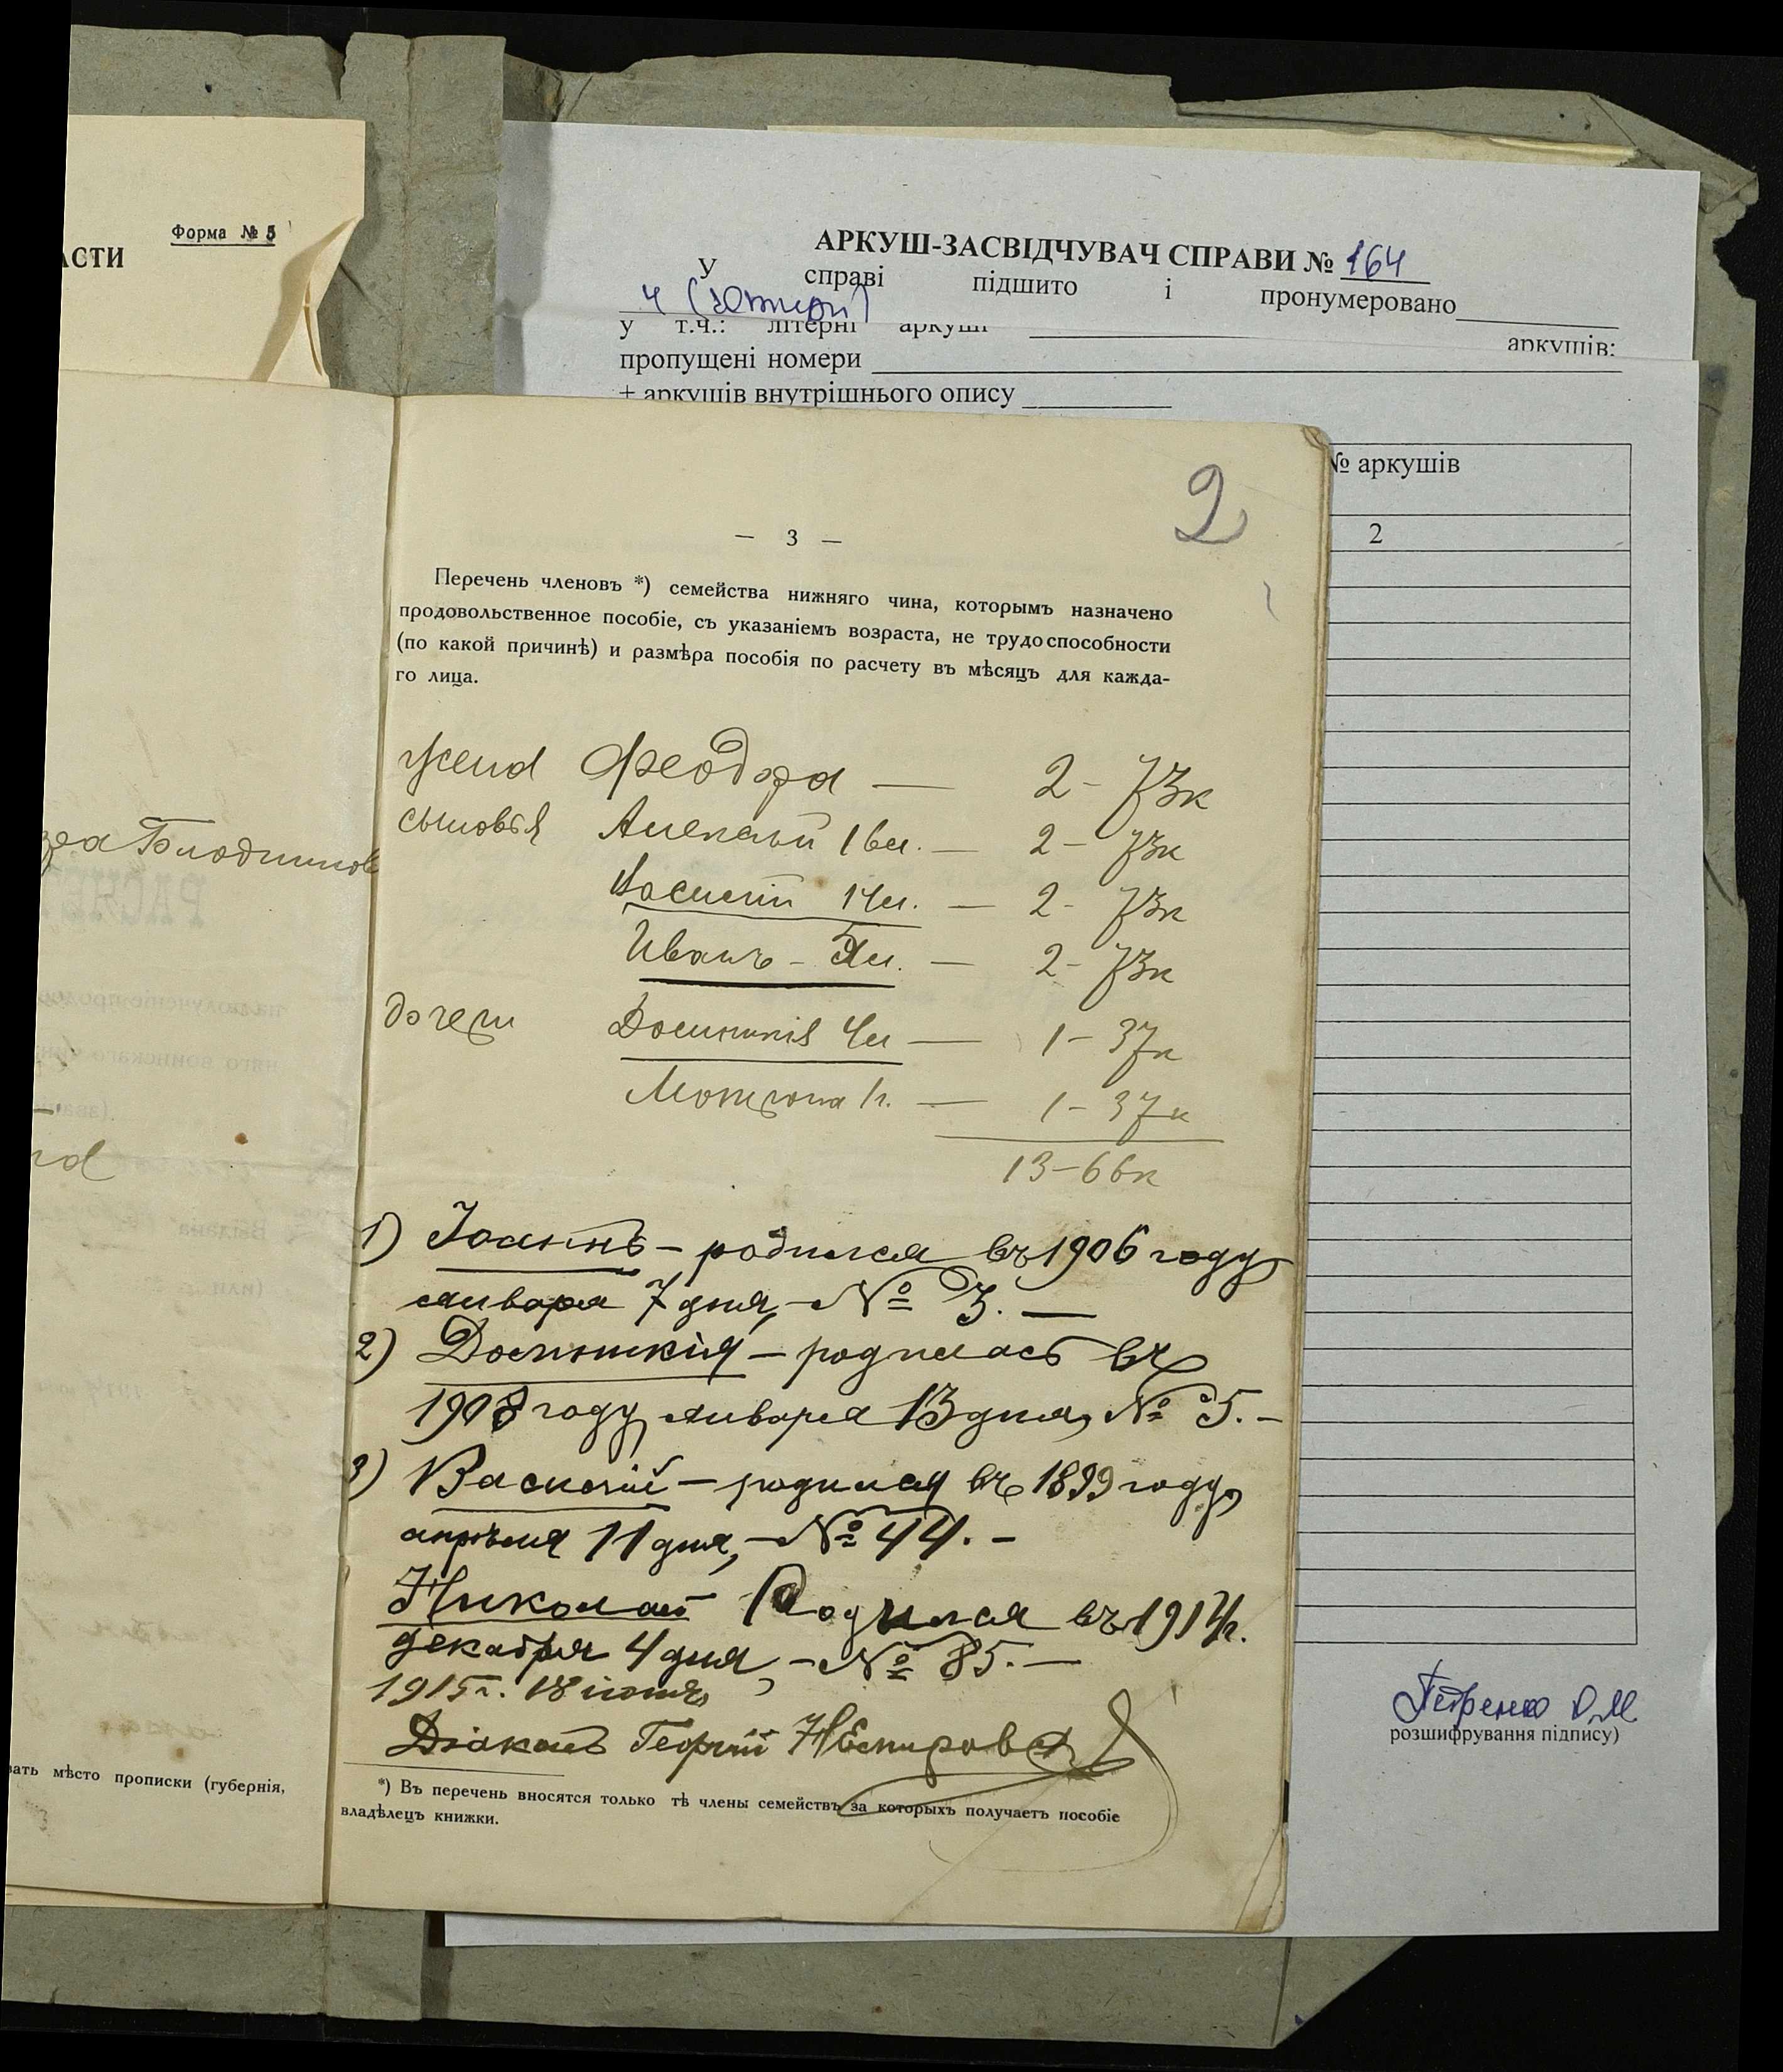 Форма № 5
АСТИ
АРКУШ-ЗАСВІДЧУВАЧ СПРАВИ № 164
У справі підшито і пронумеровано
4 (чотири)
у т.ч.: літерні аркуші
аркушів:
пропущені номери
+ аркушів внутрішнього опису
№ аркушів
2
2
— 3 —
Перечень членовъ *) семейства нижняго чина, которымъ назначено
продовольственное пособіе, съ указаніемъ возраста, не трудоспособности
(по какой причинѣ) и размѣра пособія по расчету въ мѣсяцъ для кажда-
го лица.
жена Феодора — 2 - 73к
сыновья Алексѣй 16л. — 2 - 73к
Василій 14л. — 2 - 73к
Иванъ - л. — 2 - 73к
дочери Доминикія 4л — 1 - 37к
Мотрона 1г. — 1 - 37к
13 - 66к
1) Іоаннъ - родился въ 1906 году
января 7 дня, - № 3. —
2) Доминикія - родилась въ
1908 году января 13 дня, № 5. -
3) Василій - родился въ 1899 году,
апрѣля 11 дня, - № 44. -
Николай Родился въ 1914г.
декабря 4 дня, - № 85. —
1915г. 18 іюня
Діаконъ Георгій
*) Въ перечень вносятся только тѣ члены семействъ за которыхъ получаетъ пособіе
владѣлецъ книжки.
зать мѣсто прописки (губернія,
Петренко О.М
розшифрування підпису)